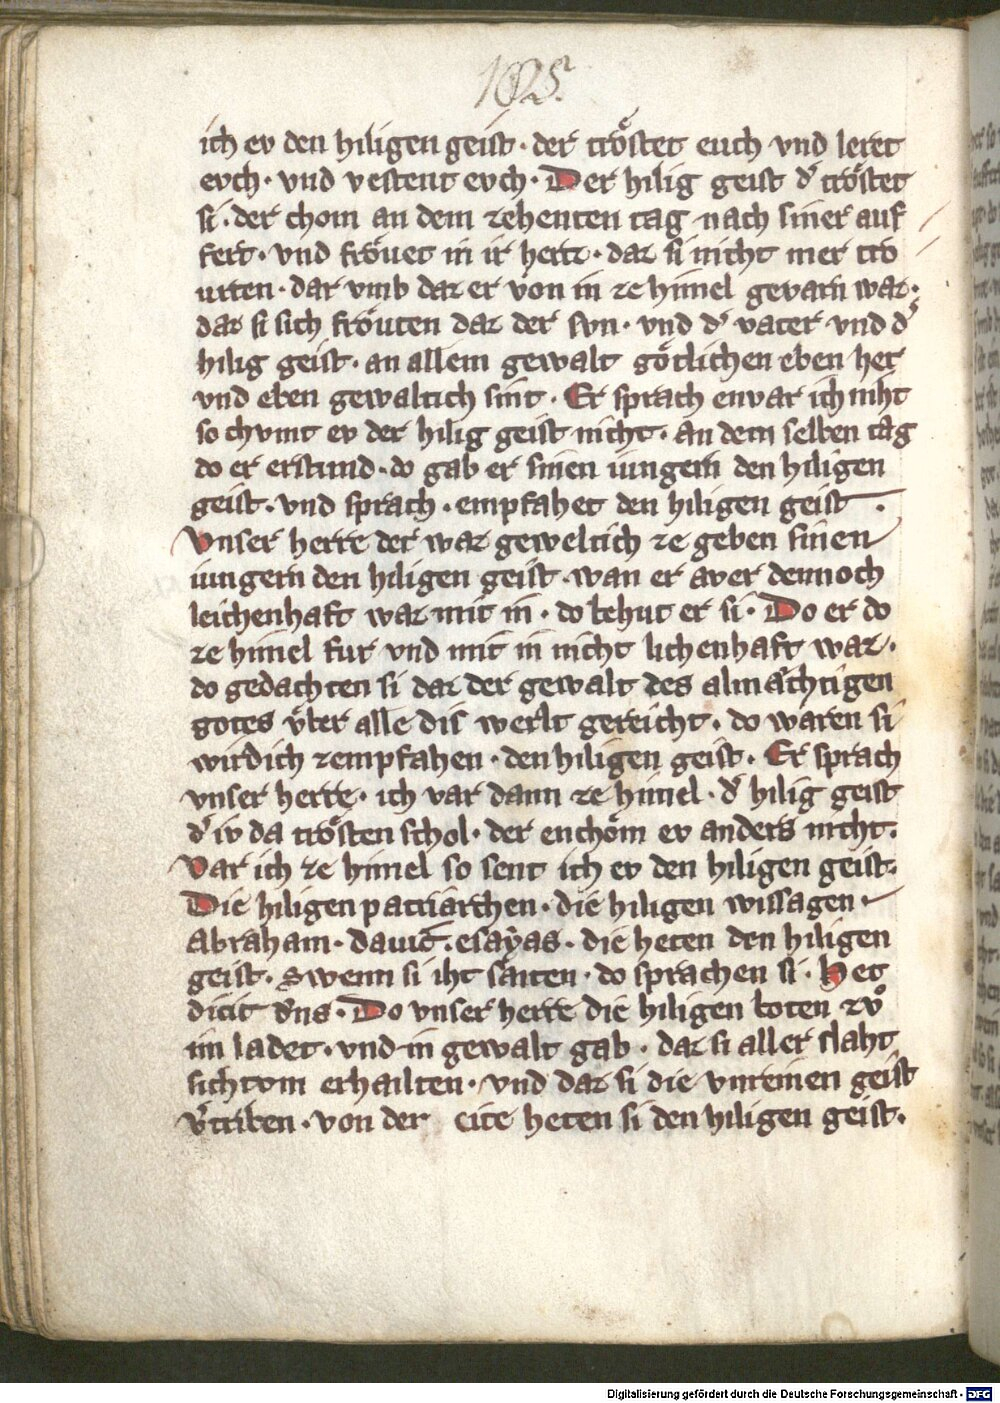 105.
ich ev den hiligen geist · der trőstet euch vnd leret
evch · vnd vestent evch · Der hilig geist d᾽ trőstet
si · der chom an dem zehenten tag nach siner auf
fert · vnd frőuet in ir hertz · daz si nicht mer tro
urten · daz vmb daz er von in ze himel gevarn waz ·
daz si sich frőuten daz der svn · vnd d᾽ vater vnd d᾽
hilig geist · an allem gewalt gőtlichen eben her
vnd eben gewaltich sint · Er sprach envar ich niht
so chvmt ev der hilig geist nicht · an dem selben tag
do er erstund · do gab er sinen iungern den hiligen
geist · vnd sprach · empfahet den hiligen geist ·
Vnser herre der waz geweltich ze geben sinen
iungern den hiligen geist · wan er aver dennoch
leichenhaft waz mit in · do behut er si · Do er do
ze himel fur vnd mit in nicht lichenhaft waz ·
do gedachten si daz der gewalt des almåchtigen
gotes vͤber alle dis werlt gereicht · do waren si
wirdich zempfahen · den hiligen geist · Er sprach
vnser herre · ich var dann ze himel · d᾽ hilig geist
d᾽ iv da trősten schol · der enchőm ev anders nicht ·
Var ich ze himel so sent ich ev den hiligen geist ·
Die hiligen patriarchen · die hiligen wissagen ·
Abraham · dauit · esaẏas · die heten den hiligen
geist · Swenn si iht såiten · do sprachen si · Hec
dicit dn̄s · Do vnser herre die hiligen boten zvͦ
im ladet · vnd in gewalt gab · daz si aller slaht
sichtvm erhailten · vnd daz si die vnreinen geist
v᾽triben · von der cite heten si den hiligen geist ·
Digitalisierung gefördert durch die Deutsche Forschungsgemeinschaft - DFG